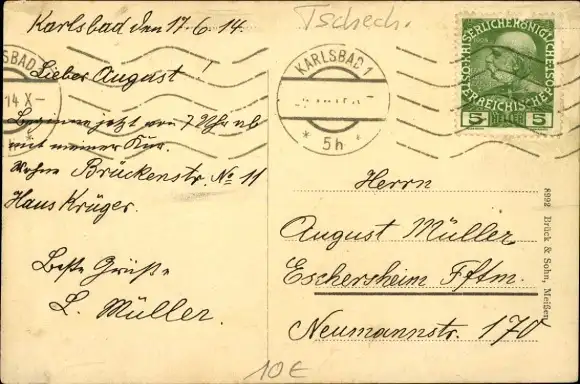 Karlsbad den 17.6.14.
Lieber August!
Beginne jetzt von 7 Uhr ab
mit meiner Kur.
Wohne Brückenstr. No 11
Haus Krüger.
Beste Grüße
L. Müller.
Tschech.
KARLSBAD 1
*5h*
14 X-
KAISERLICHE KÖNIGLICHE
ÖSTERREICHISCHE
5 HELLER 5
Herrn
August Müller
Eschersheim Fftm.
Neumannstr. 170
8992 Brück & Sohn, Meißen.
10€